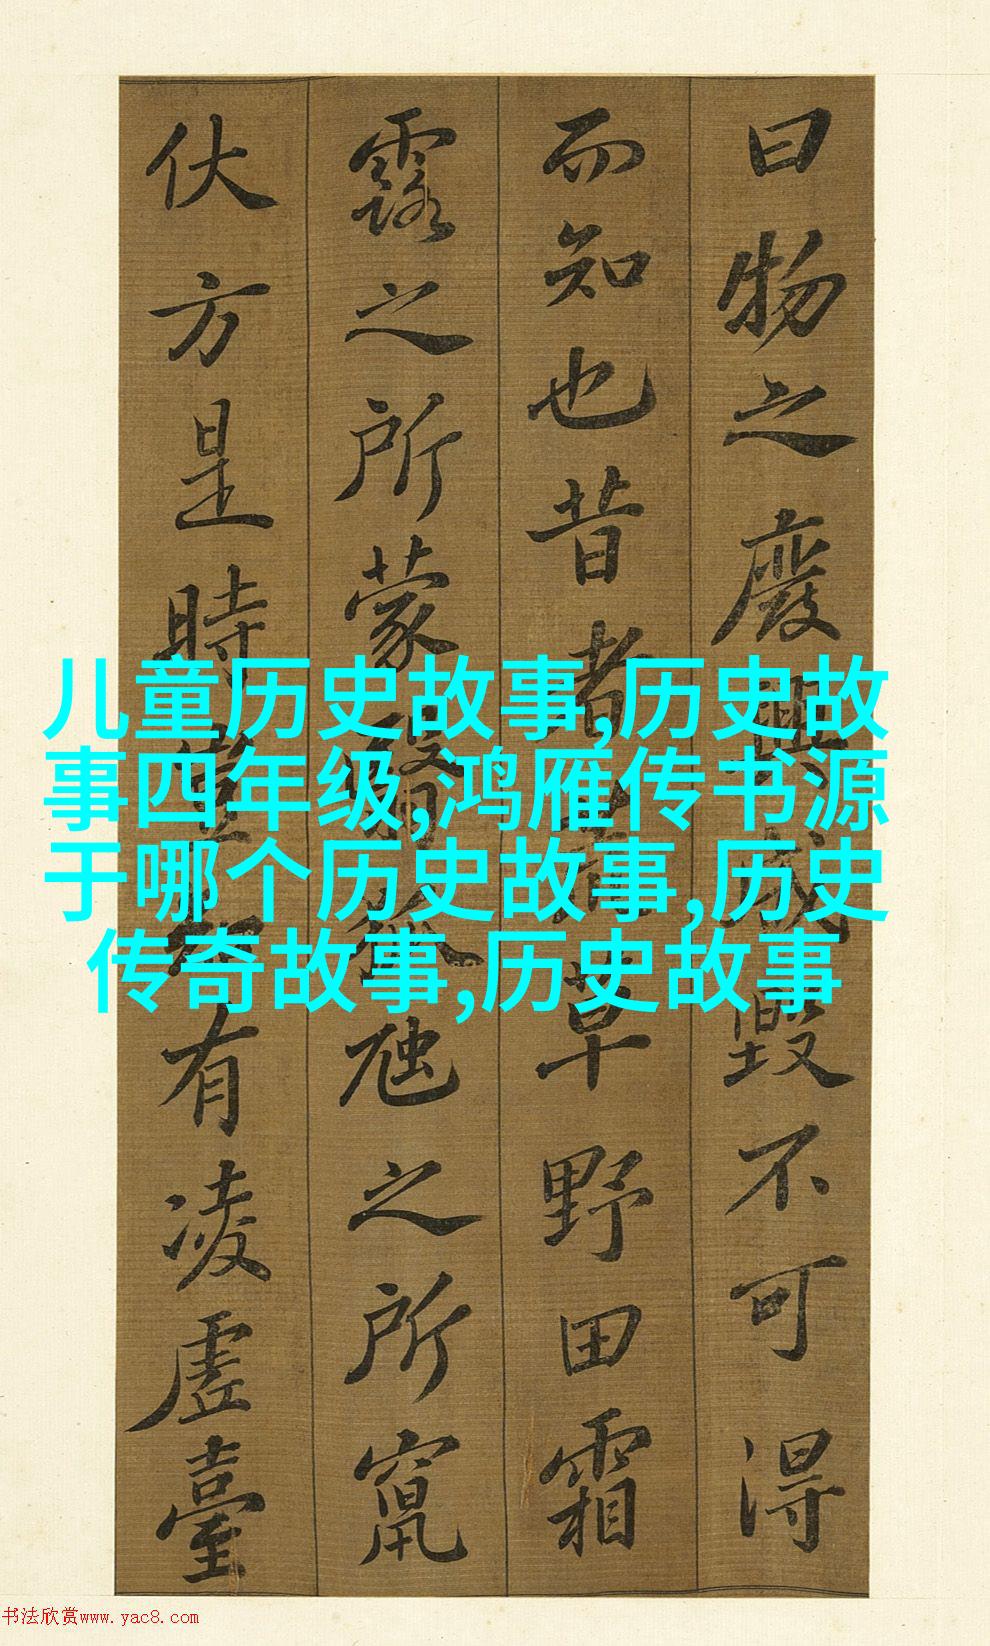 曰物之廢興成毀不可得
而知也昔者荒草野田霜
露之所蒙翳狐虺之所竄
伏方是時豈知有凌虛臺
儿童历史故事,历史故
事四年级,鸿雁传书源
于哪个历史故事,历史
传奇故事,历史故事
书法欣赏www.yac8.com